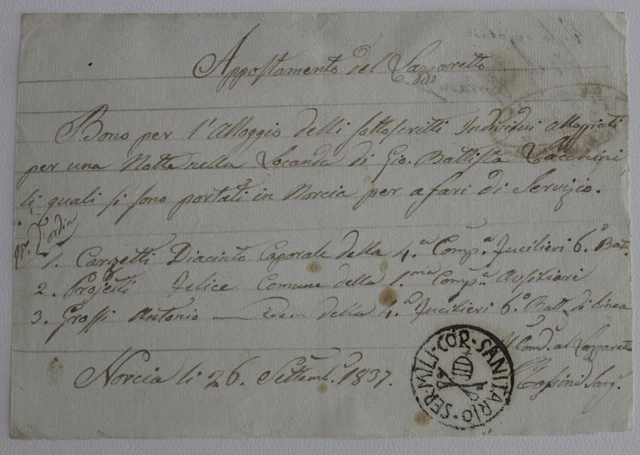 Appostamento del Lazzaretto
Bono per l'Alloggio delli sottoscritti Individui alloggiati
per una Notte nella Locanda di Gio. Battista Tacchini
li quali si sono portati in Norcia per afari di Servizio.
1. Canzetti Diacinto Caporale della 4.a Comp.a Fucilieri 6.o Bat.
2. Projetti Felice Comune della 1.ma Comp.a Ausiliari
3. Grossi Antonio — della 4.a Fucilieri 6.o Batt. di Linea
Il Com.e al Lazzaretto
Norcia li 26. Settemb. 1837.
SER. MILI. COR. SANITARIO